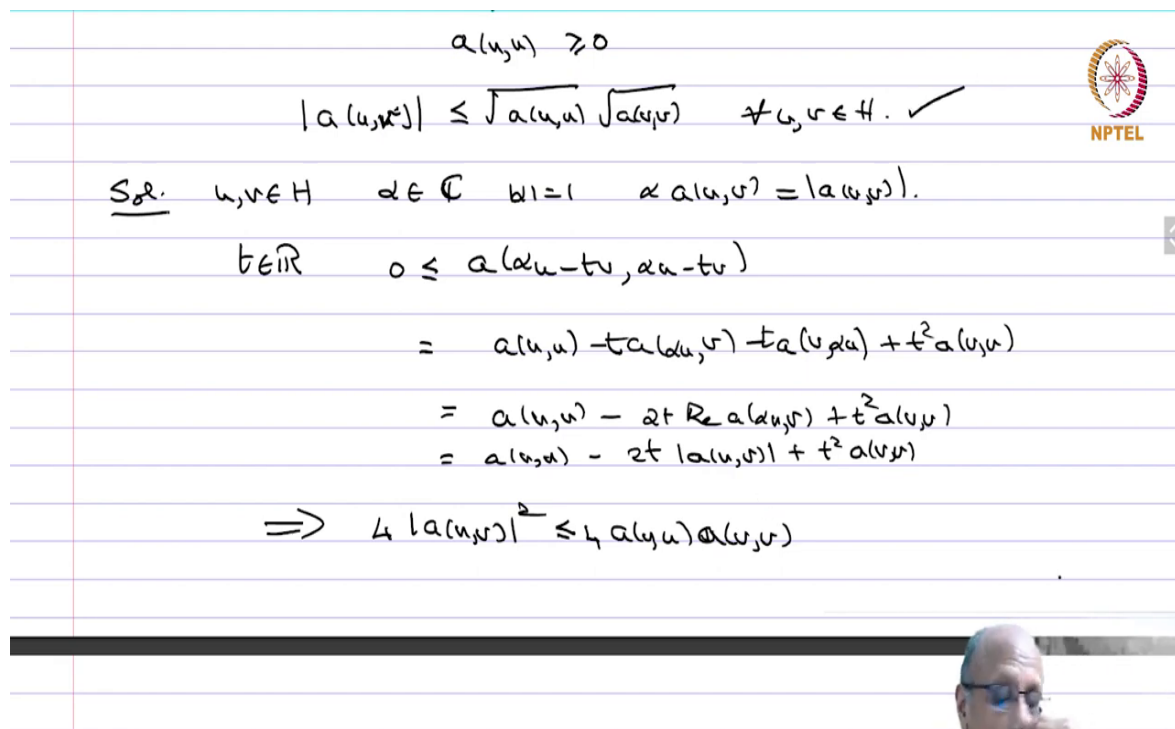 a(u,u) ≥ 0
|a(u,v)| ≤ √a(u,u) √a(v,v) ∀ u,v ∈ H. ✓
NPTEL
Sol. u,v ∈ H α ∈ ℂ |α|=1 α a(u,v) = |a(u,v)|.
t ∈ ℝ 0 ≤ a(αu-tv, αu-tv)
= a(u,u) - t a(αu,v) - t a(v,αu) + t² a(v,v)
= a(u,u) - 2t Re a(αu,v) + t² a(v,v)
= a(u,u) - 2t |a(u,v)| + t² a(v,v)
⇒ 4 |a(u,v)|² ≤ 4 a(u,u) a(v,v)